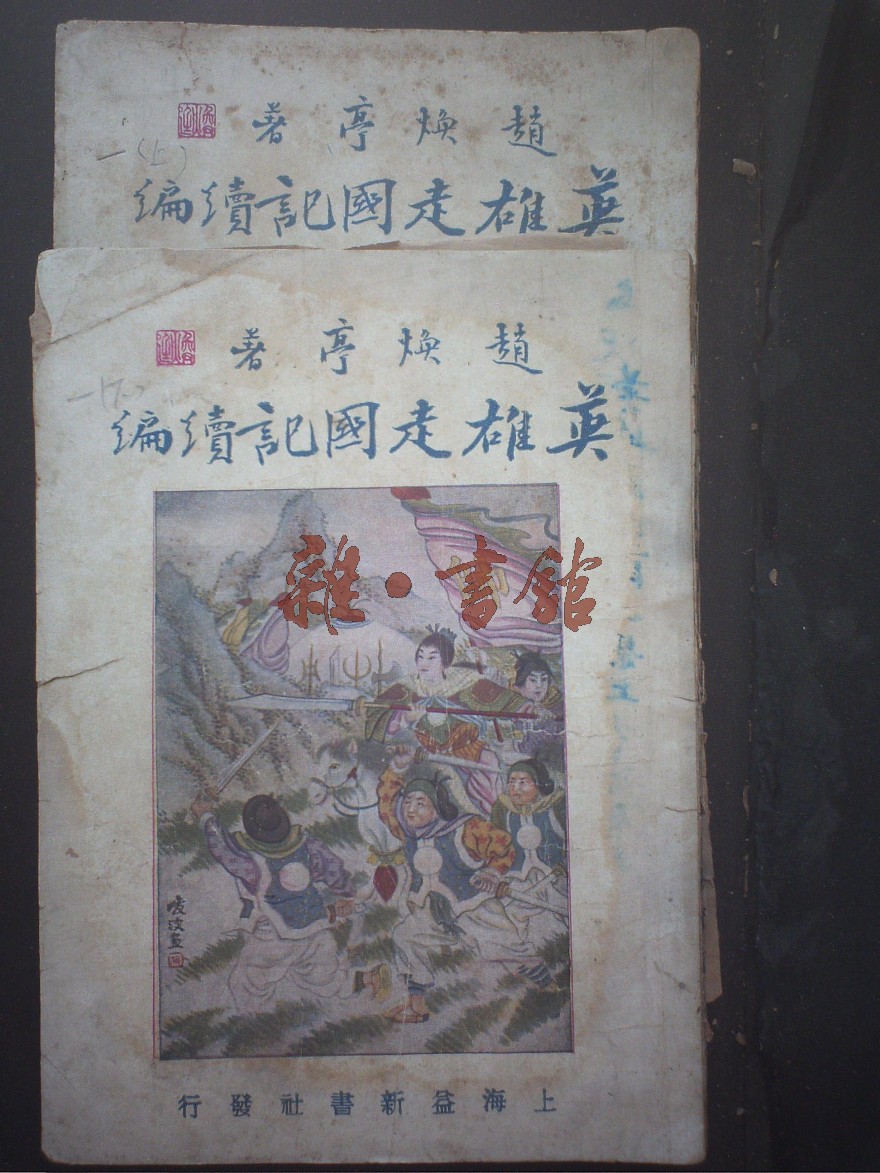 趙煥亭著
一(上)
英雄走國記續編
趙煥亭著
一(下)
英雄走國記續編
雜·書館
上海益新書社發行